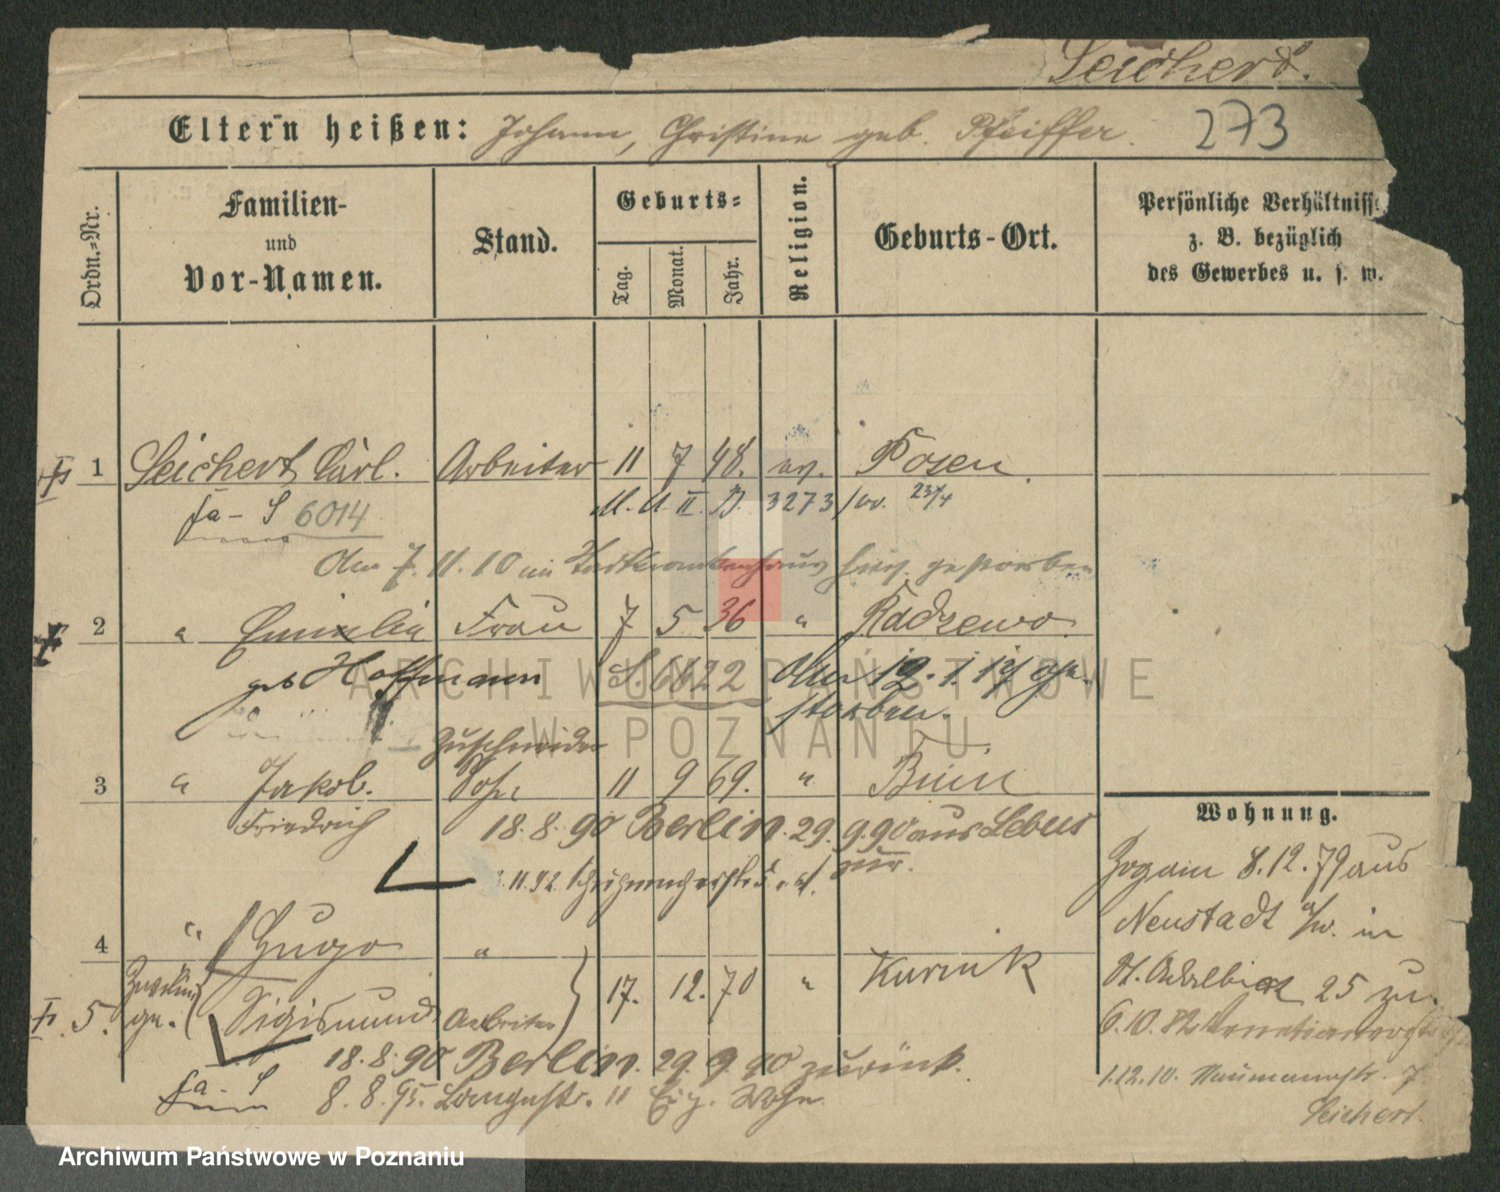 Seichert.
Eltern heißen: Johann, Christine geb. Pfeiffer. 273
Ordn.=Nr.
Familien-
und
Vor-Namen.
Stand.
Geburts=
Tag.
Monat.
Jahr.
Religion.
Geburts-Ort.
Persönliche Verhältniss
z. B. bezüglich
des Gewerbes u. s. w.
1 Seichert Carl. Arbeiter 11 7 48. ev. Posen
fa - S 6014 M. U. II. B. 3273 23/4
Am 7.11.10 im Stadtkrankenhaus gestorben
2 " Emilie Frau 7 5 36 " Radzewo
geb Hoffmann S. 6622 Am 12.1.17 ge-
storben.
Zuschneider
3 " Jakob. Sohn 11 9 69. " Bnin
Friedrich 18.8.90 Berlin. 29.9.90 aus Lebus
zur.
11.92.
4 " Hugo "
17. 12. 70 " Kurnik
5. Sigismund Arbeiter
18.8.90 Berlin. 29.9.90 zurück.
fa - S 8.8.95. Langestr. 11 Eig. Wohn
Wohnung.
Zog am 8.12.79 aus
Neustadt a/w. in
St. Adalbert 25 zu.
6.10.82
1.12.10. Naumannstr. 7
Seichert.
ARCHIWUM PAŃSTWOWE
W POZNANIU
Archiwum Państwowe w Poznaniu